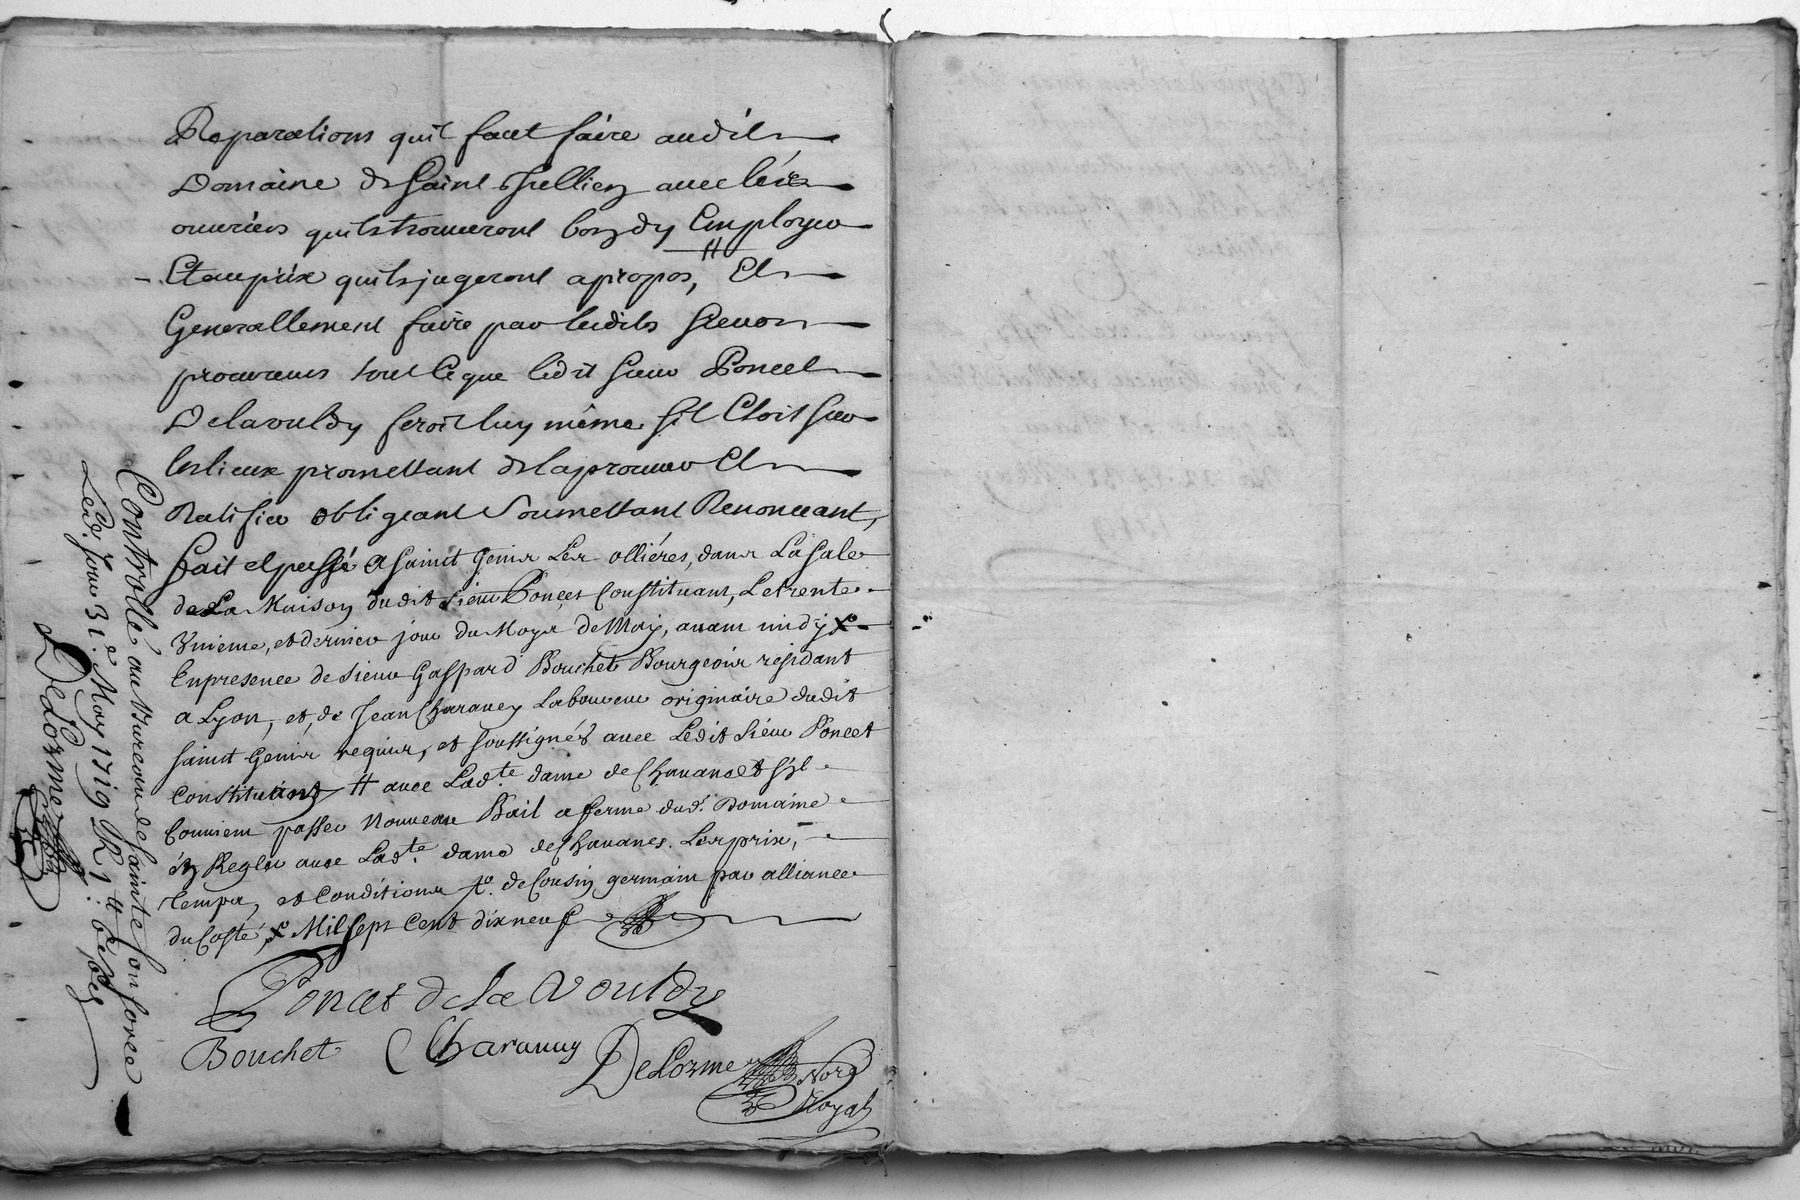 Reparations quil faut faire audit
Domaine de Saint Jullien avec les
ouvriers quils trouveront bon dy Employer
Et au prix quils jugeront apropos, Et
Generallement faire par lesdits sieurs
procureurs tout ce que ledit sieur Poncet
Delavouldy feroit luy même sil Etoit sur
les lieux promettant de laprouver Et
Ratifier obligeant Soumettant Renonceant,
fait et passé a Sainct Genis Les ollières, dans La Sale
de La Maison dudit Sieur Poncet Constituant, Le trente
Unieme, et dernier jour du Moys de May, avant midy
En presence de Sieur Gaspard Bouchet Bourgeois residant
a Lyon, et de Jean Charavey Laboureur originaire dudit
Sainct Genis requis, et soussignés avec Ledit Sieur Poncet
Constituant # avec Lad.te dame de Chavanes s'il
Convient passer nouveau Bail a ferme dud.t Domaine
en Regler avec Lad.te dame de Chavanes Les prix,
temps, et Conditions de Cousin germain par alliance
du Costé, Mil sept Cent dix neuf
Poncet de la Vouldy
Bouchet Charavay DeLorme
Not.e Royal
Controllé au Bureau de Sainte
Led.t Jour 31.e May 1719
DeLorme